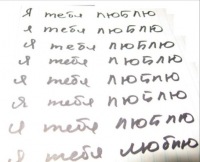 Я тебя люблю
я тебя люблю
я тебя люблю
я тебя люблю
я тебя люблю
я тебя люблю
я тебя люблю
я тебя люблю